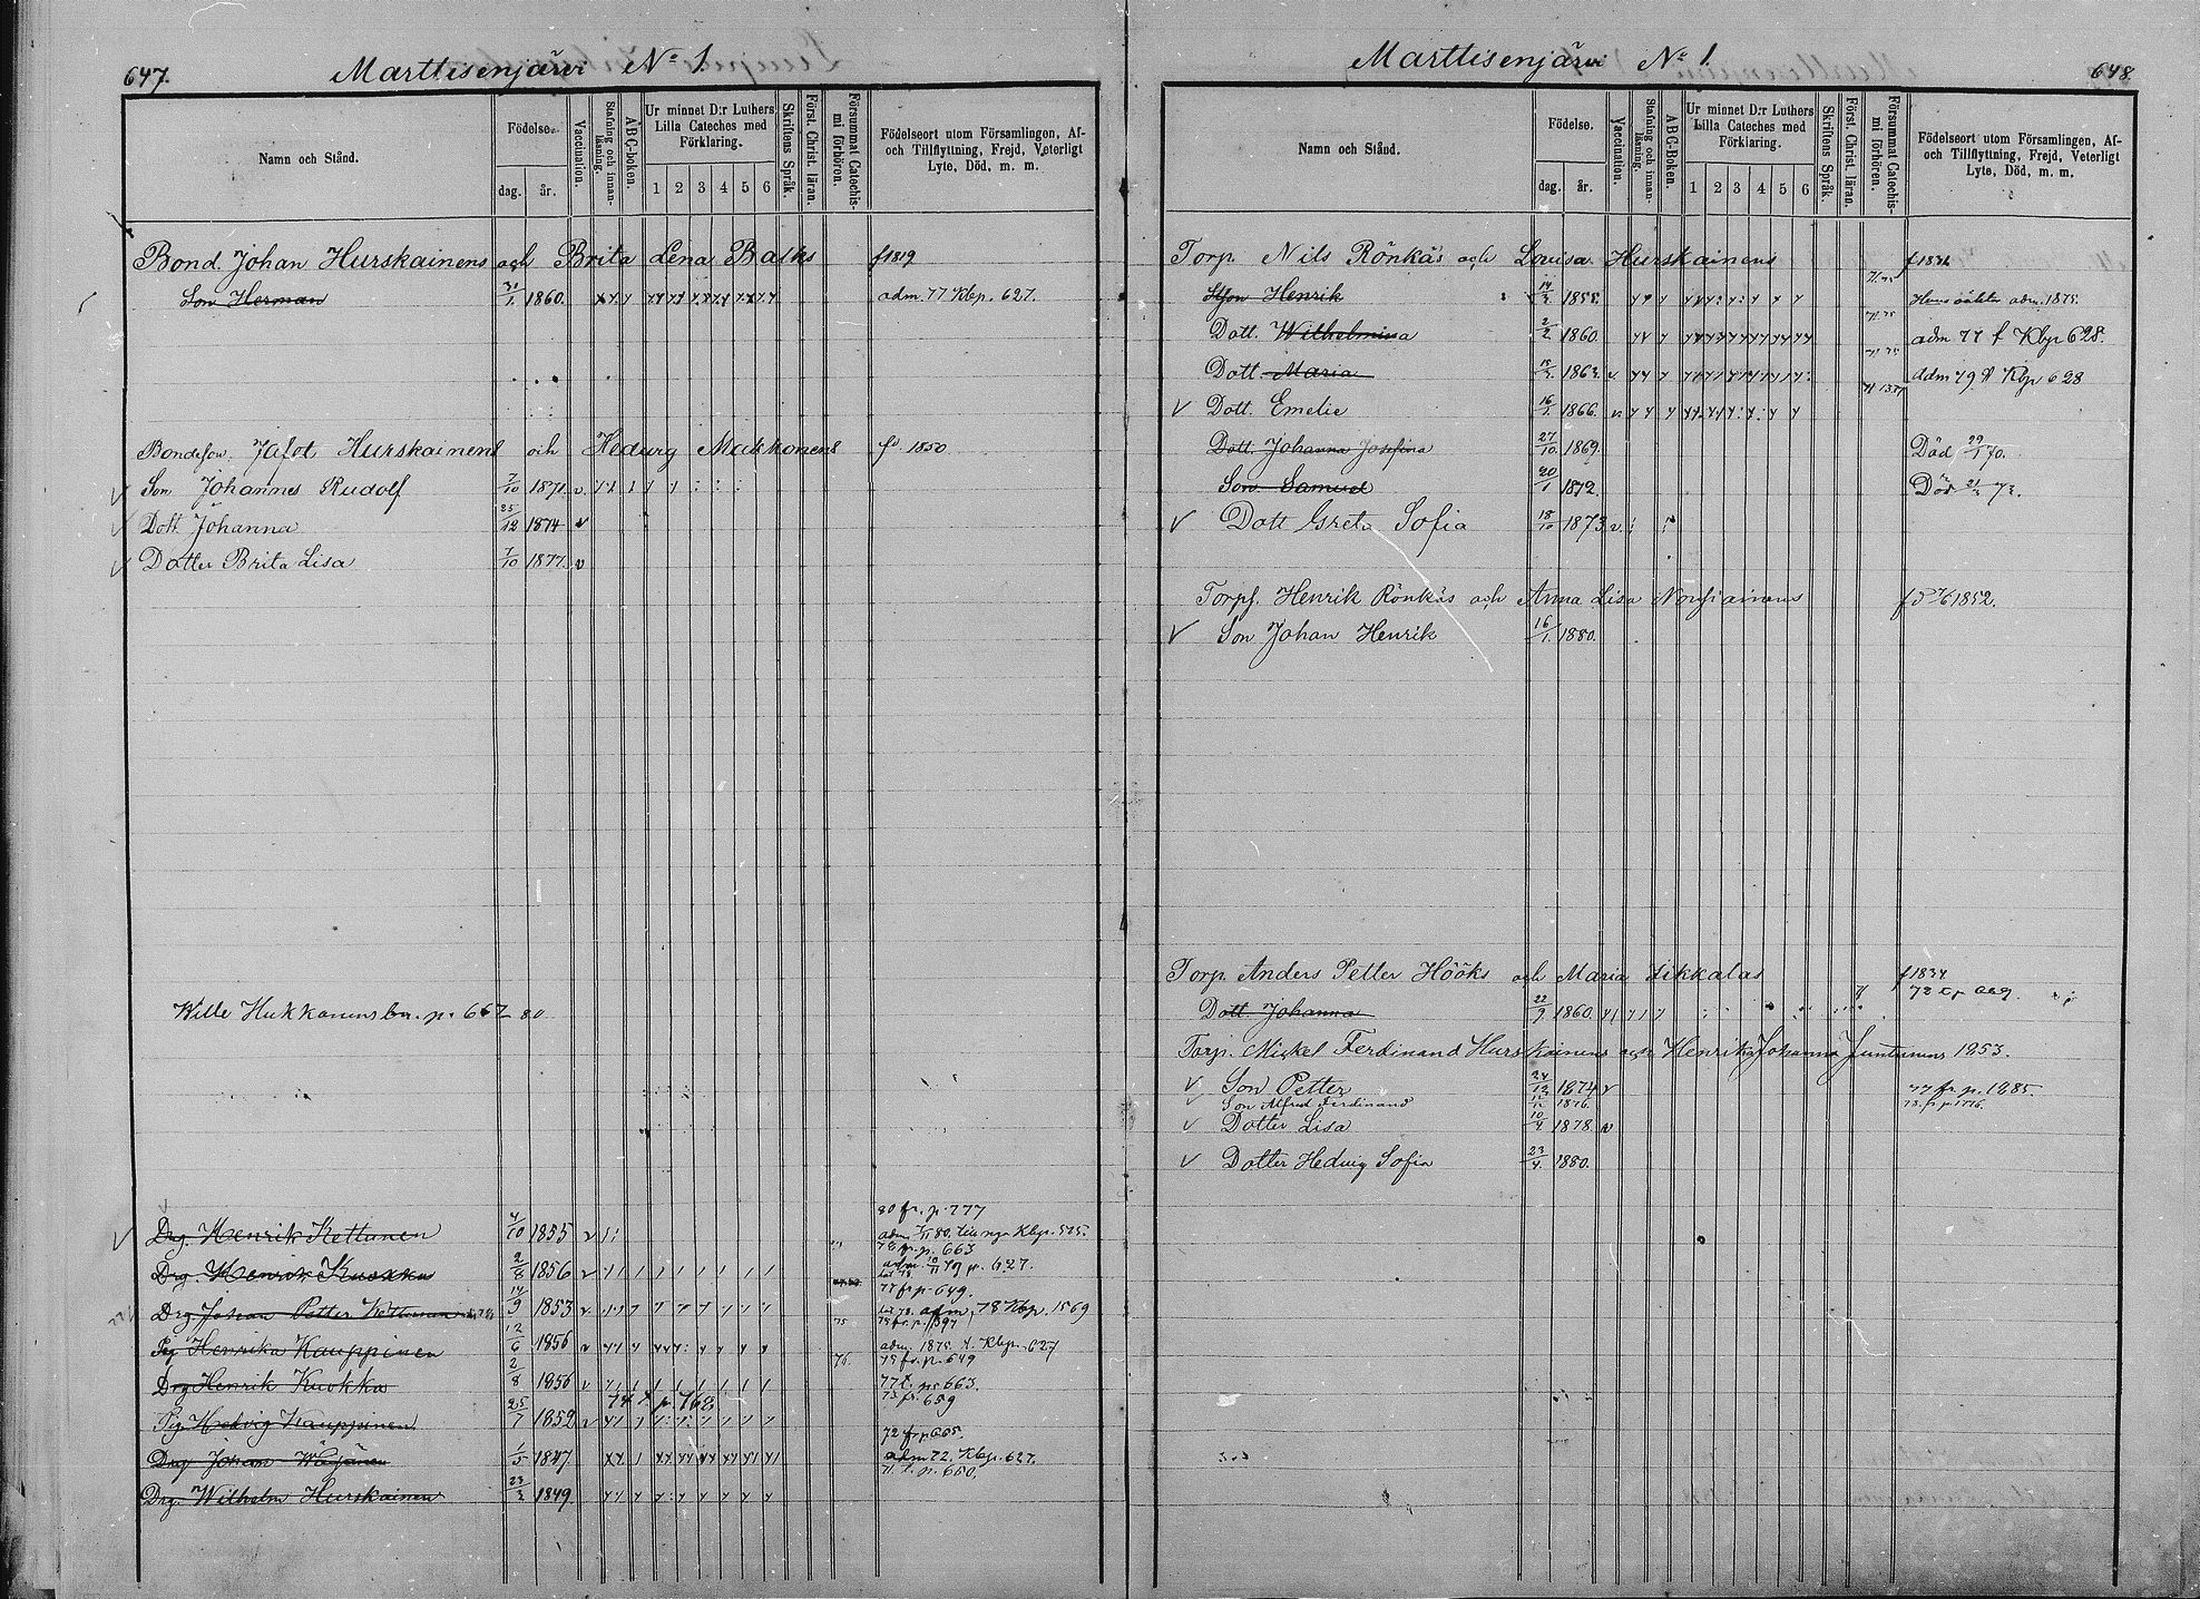 647.
Marttisenjärvi No 1.
Namn och Stånd.
Födelse.
dag. år.
Vaccination.
Stafning och innanläsning.
ABC-boken.
Ur minnet D:r Luthers Lilla Cateches med Förklaring.
1 2 3 4 5 6
Skriftens Språk.
Först. Christ. läran.
Försummat Catechismi förhören.
Födelseort utom Församlingen, Af- och Tillflyttning, Frejd, Veterligt Lyte, Död, m. m.
Bond. Johan Hurskainens och Brita Lena Balks f 1819
Son Herman 31/1 1860. adm. 77 Kbp. 627.
Bondeson Jafet Hurskainens och Hedvig Makkonens fd 1850
Son Johannes Rudolf 7/10 1871. v.
Dott. Johanna 25/12 1874 v
Dotter Brita Lisa 7/10 1877. v
Wille Hukkanens p. 667 80
80 fr. p. 777
Drg. Henrik Kettunen 4/10 1855 v adm 80. Kbp. 525.
78 fr. p. 663
Drg. Henrik Kuokka 2/8 1856 v p. 627.
77 fr p 649.
Drg. Johan Petter Kettunen 14/9 1853 v. adm. 78 Kbp. 1569
Pig. Henrika Kauppinen 12/6 1856 v adm. 1875. Kbp. 627
75 fr. p. 649
Drg Henrik Kuokka 2/8 1856 v 77 t. p. 663.
74 t. p. 768 73 fr. 659
Pig. Hedvig Kauppinen 25/7 1852 v
72 fr p 665.
Drg Johan Väyänen 1/5 1847. adm 72. Kbp. 627.
71 t. p. 660.
Drg. Wilhelm Hurskainen 23/3 1849.
Marttisenjärvi No 1.
648.
Namn och Stånd.
Födelse.
dag. år.
Vaccination.
Stafning och innanläsning.
ABC-Boken.
Ur minnet D:r Luthers Lilla Cateches med Förklaring.
1 2 3 4 5 6
Skriftens Språk.
Först. Christ. läran.
Försummat Catechismi förhören.
Födelseort utom Församlingen, Af- och Tillflyttning, Frejd, Veterligt Lyte, Död, m. m.
Torp. Nils Rönkäs och Lovisa Hurskainens
Henrik 14/3 1855. adm. 1875.
Dott. Wilhelmina 2/2 1860. adm 77 f Kbp 628.
Dott. Maria 1863. v. Adm 79 Kbp 628
Dott. Emelie 16/1. 1866. v
Dott. Johanna Josefina 27/10 1869. Död 29/1 70.
Son Samuel 20/1 1872. Död
Dott Greta Sofia 18/10 1873 v.
Torps. Henrik Rönkäs och Anna Lisa Nousiainens 1852.
Son Johan Henrik 16/1. 1880.
Torp. Anders Petter Hööks och Maria Likkalas f 1834
Dott. Johanna 22/9 1860.
Torp. Mickel Ferdinand Hurskainens och Henrika Johanna Juntunens 1853.
Son Petter 24/12 1874 v 77 fr. p. 1285.
Son Alfred Ferdinand 1876.
Dotter Lisa 10/4 1878. v
Dotter Hedvig Sofia 23/4. 1880.